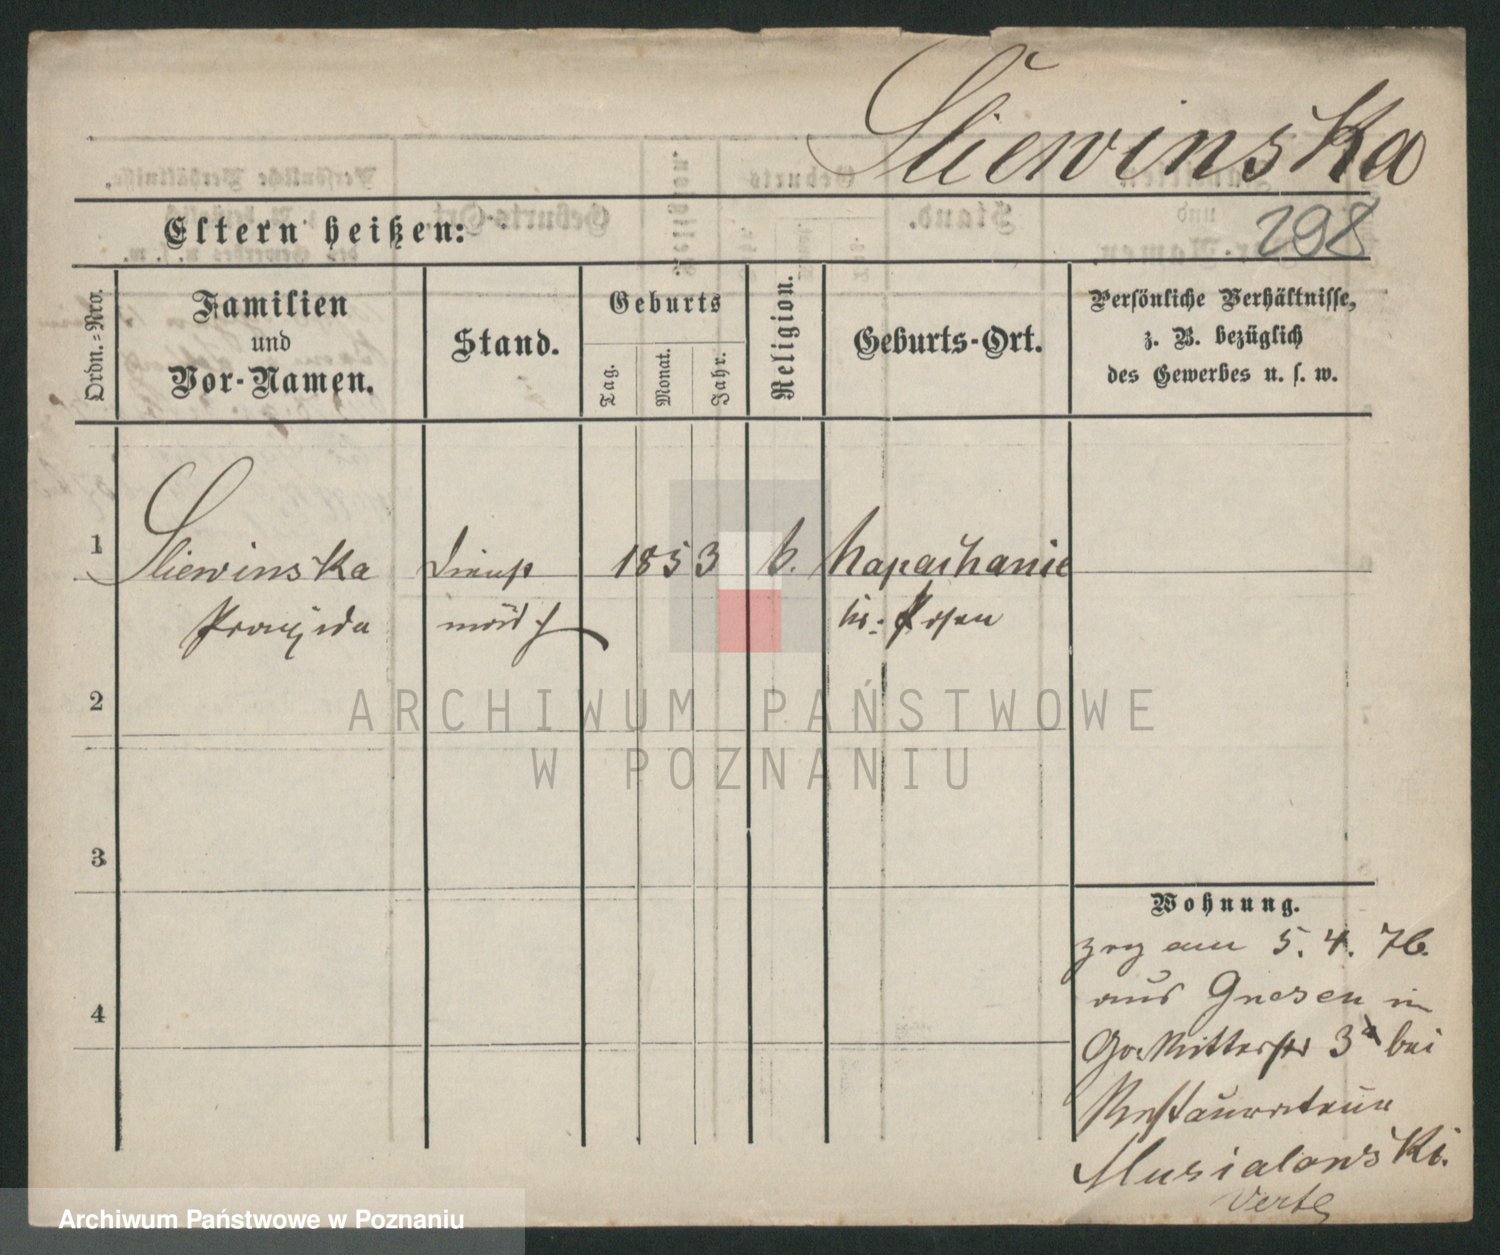 Sliewinska
298
Eltern heißen:
Ordn.-Nro.
Familien
und
Vor-Namen.
Stand.
Geburts
Tag.
Monat.
Jahr.
Religion.
Geburts-Ort.
Persönliche Verhältnisse,
z. B. bezüglich
des Gewerbes u. s. w.
1
Sliewinska
Dienst
1853
k.
Napachanie
mädch
Kr. Posen
2
ARCHIWUM PAŃSTWOWE
W POZNANIU
3
Wohnung.
zog am 5. 4. 76.
aus Gnesen in
4
Gr. Ritterstr 3 bei
Restaurateur
Musialowski.
Verte
Archiwum Państwowe w Poznaniu